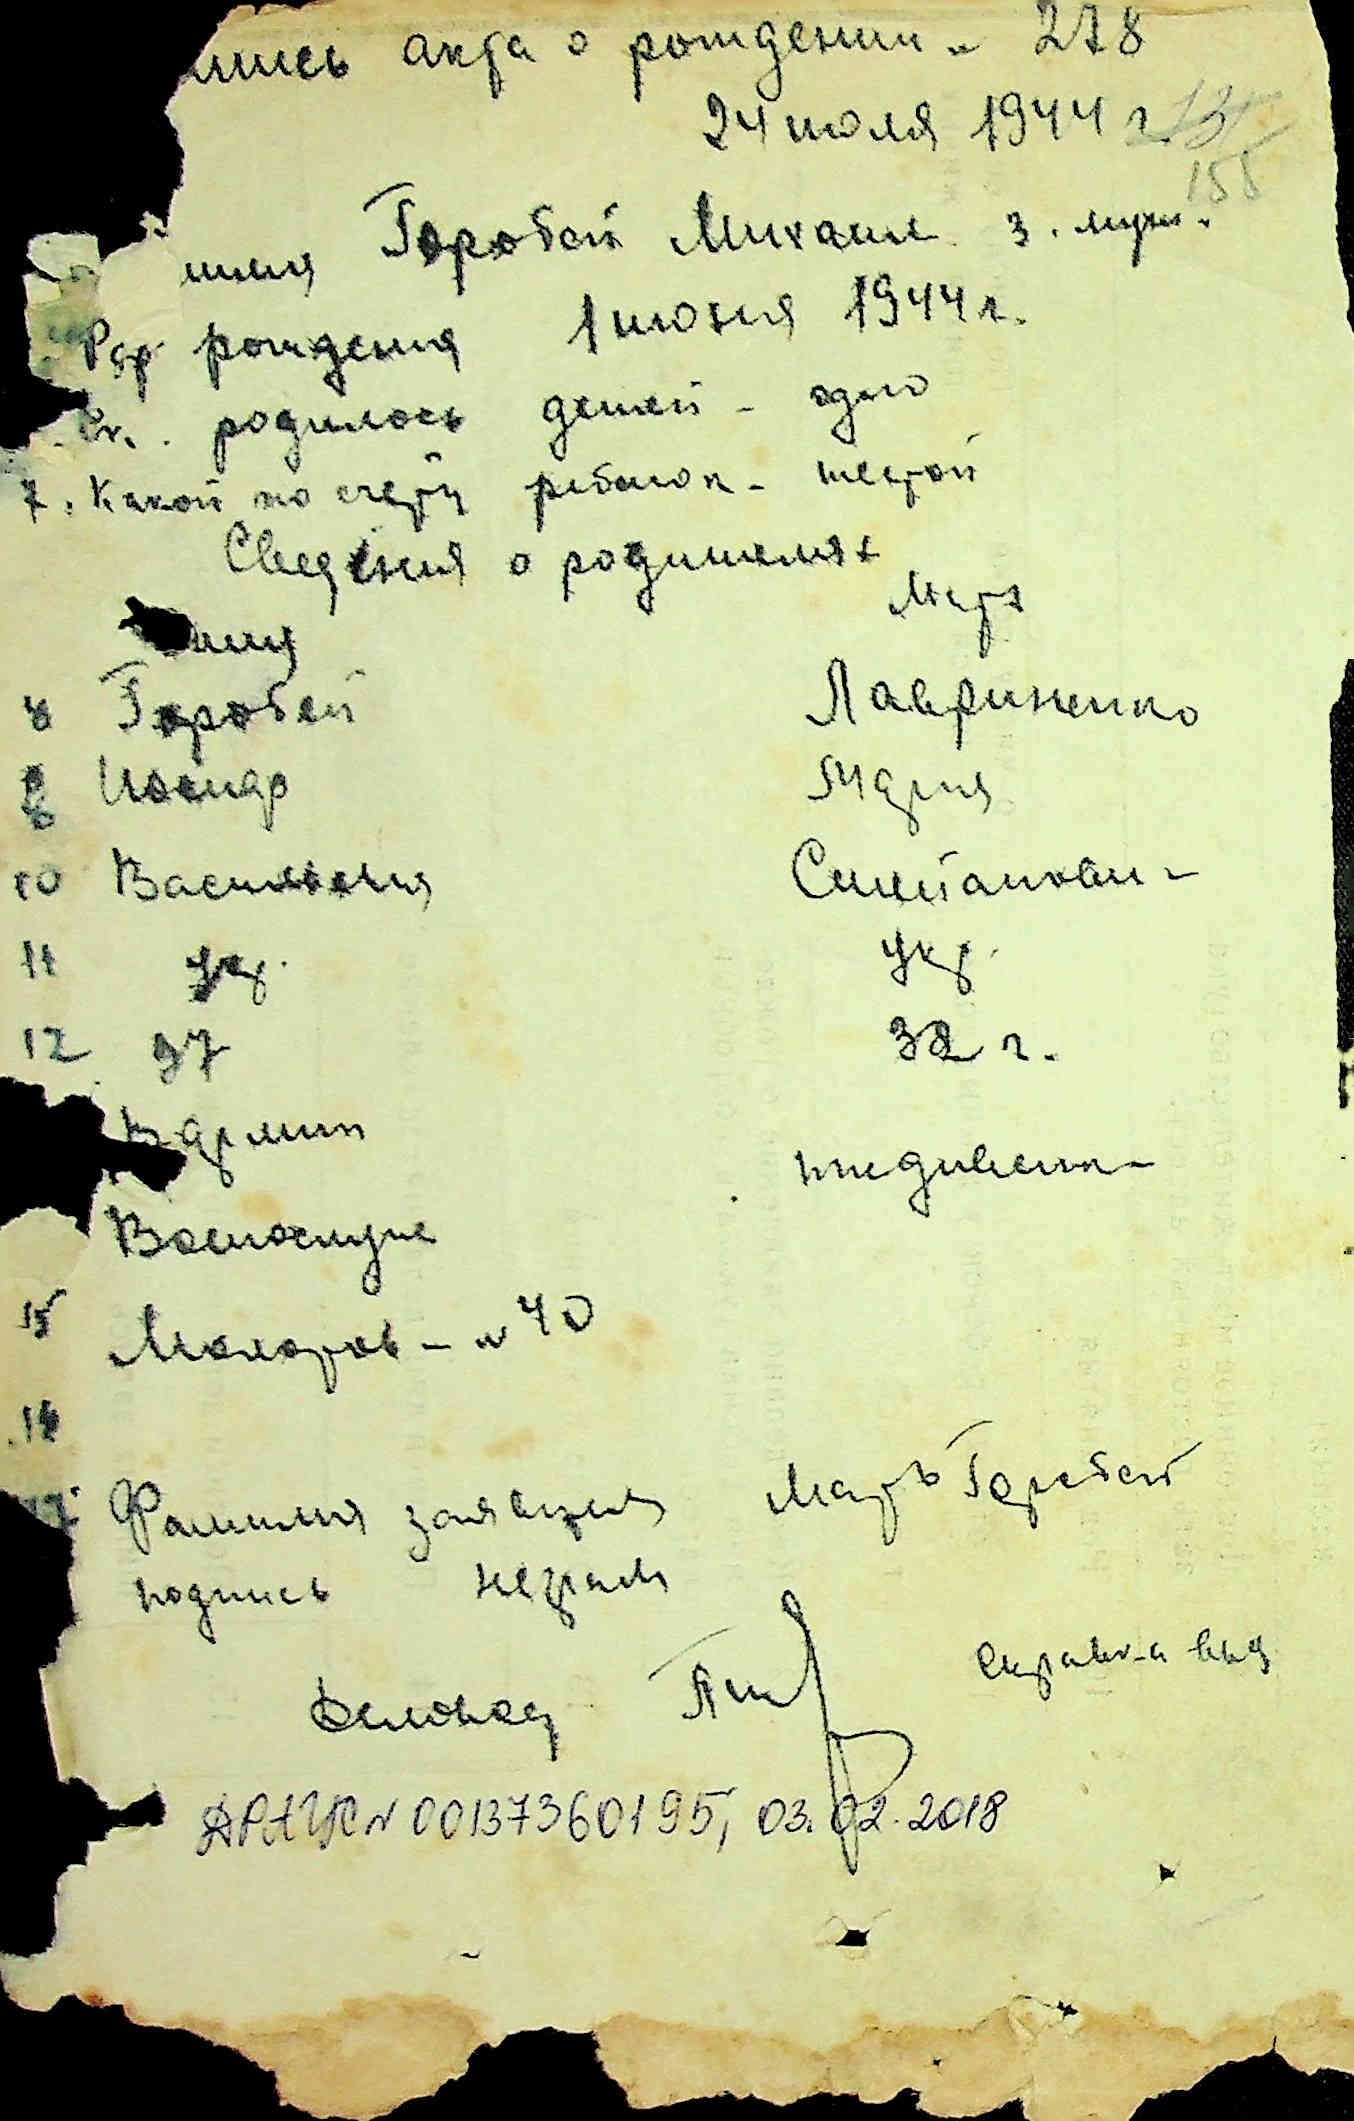 пись акта о рождении № 278
24 июля 1944 г.
155
имя Горобей Михаил 3. муж.
рождения 1 июня 1944 г.
родилось детей - одно
7. Какой по счету ребенок - шестой
Сведения о родителях
Мать
8 Горобей Лавриненко
Иосиф Мария
10 Васильевич Степанови-
11 укр. укр.
12 37 32 г.
В армии иждивени-
15 - № 40
16
17. Фамилия заявителя Мать Горобей
подпись неграм
Деловод Справка выд
ДРАЦС № 00137360195, 03.02.2018